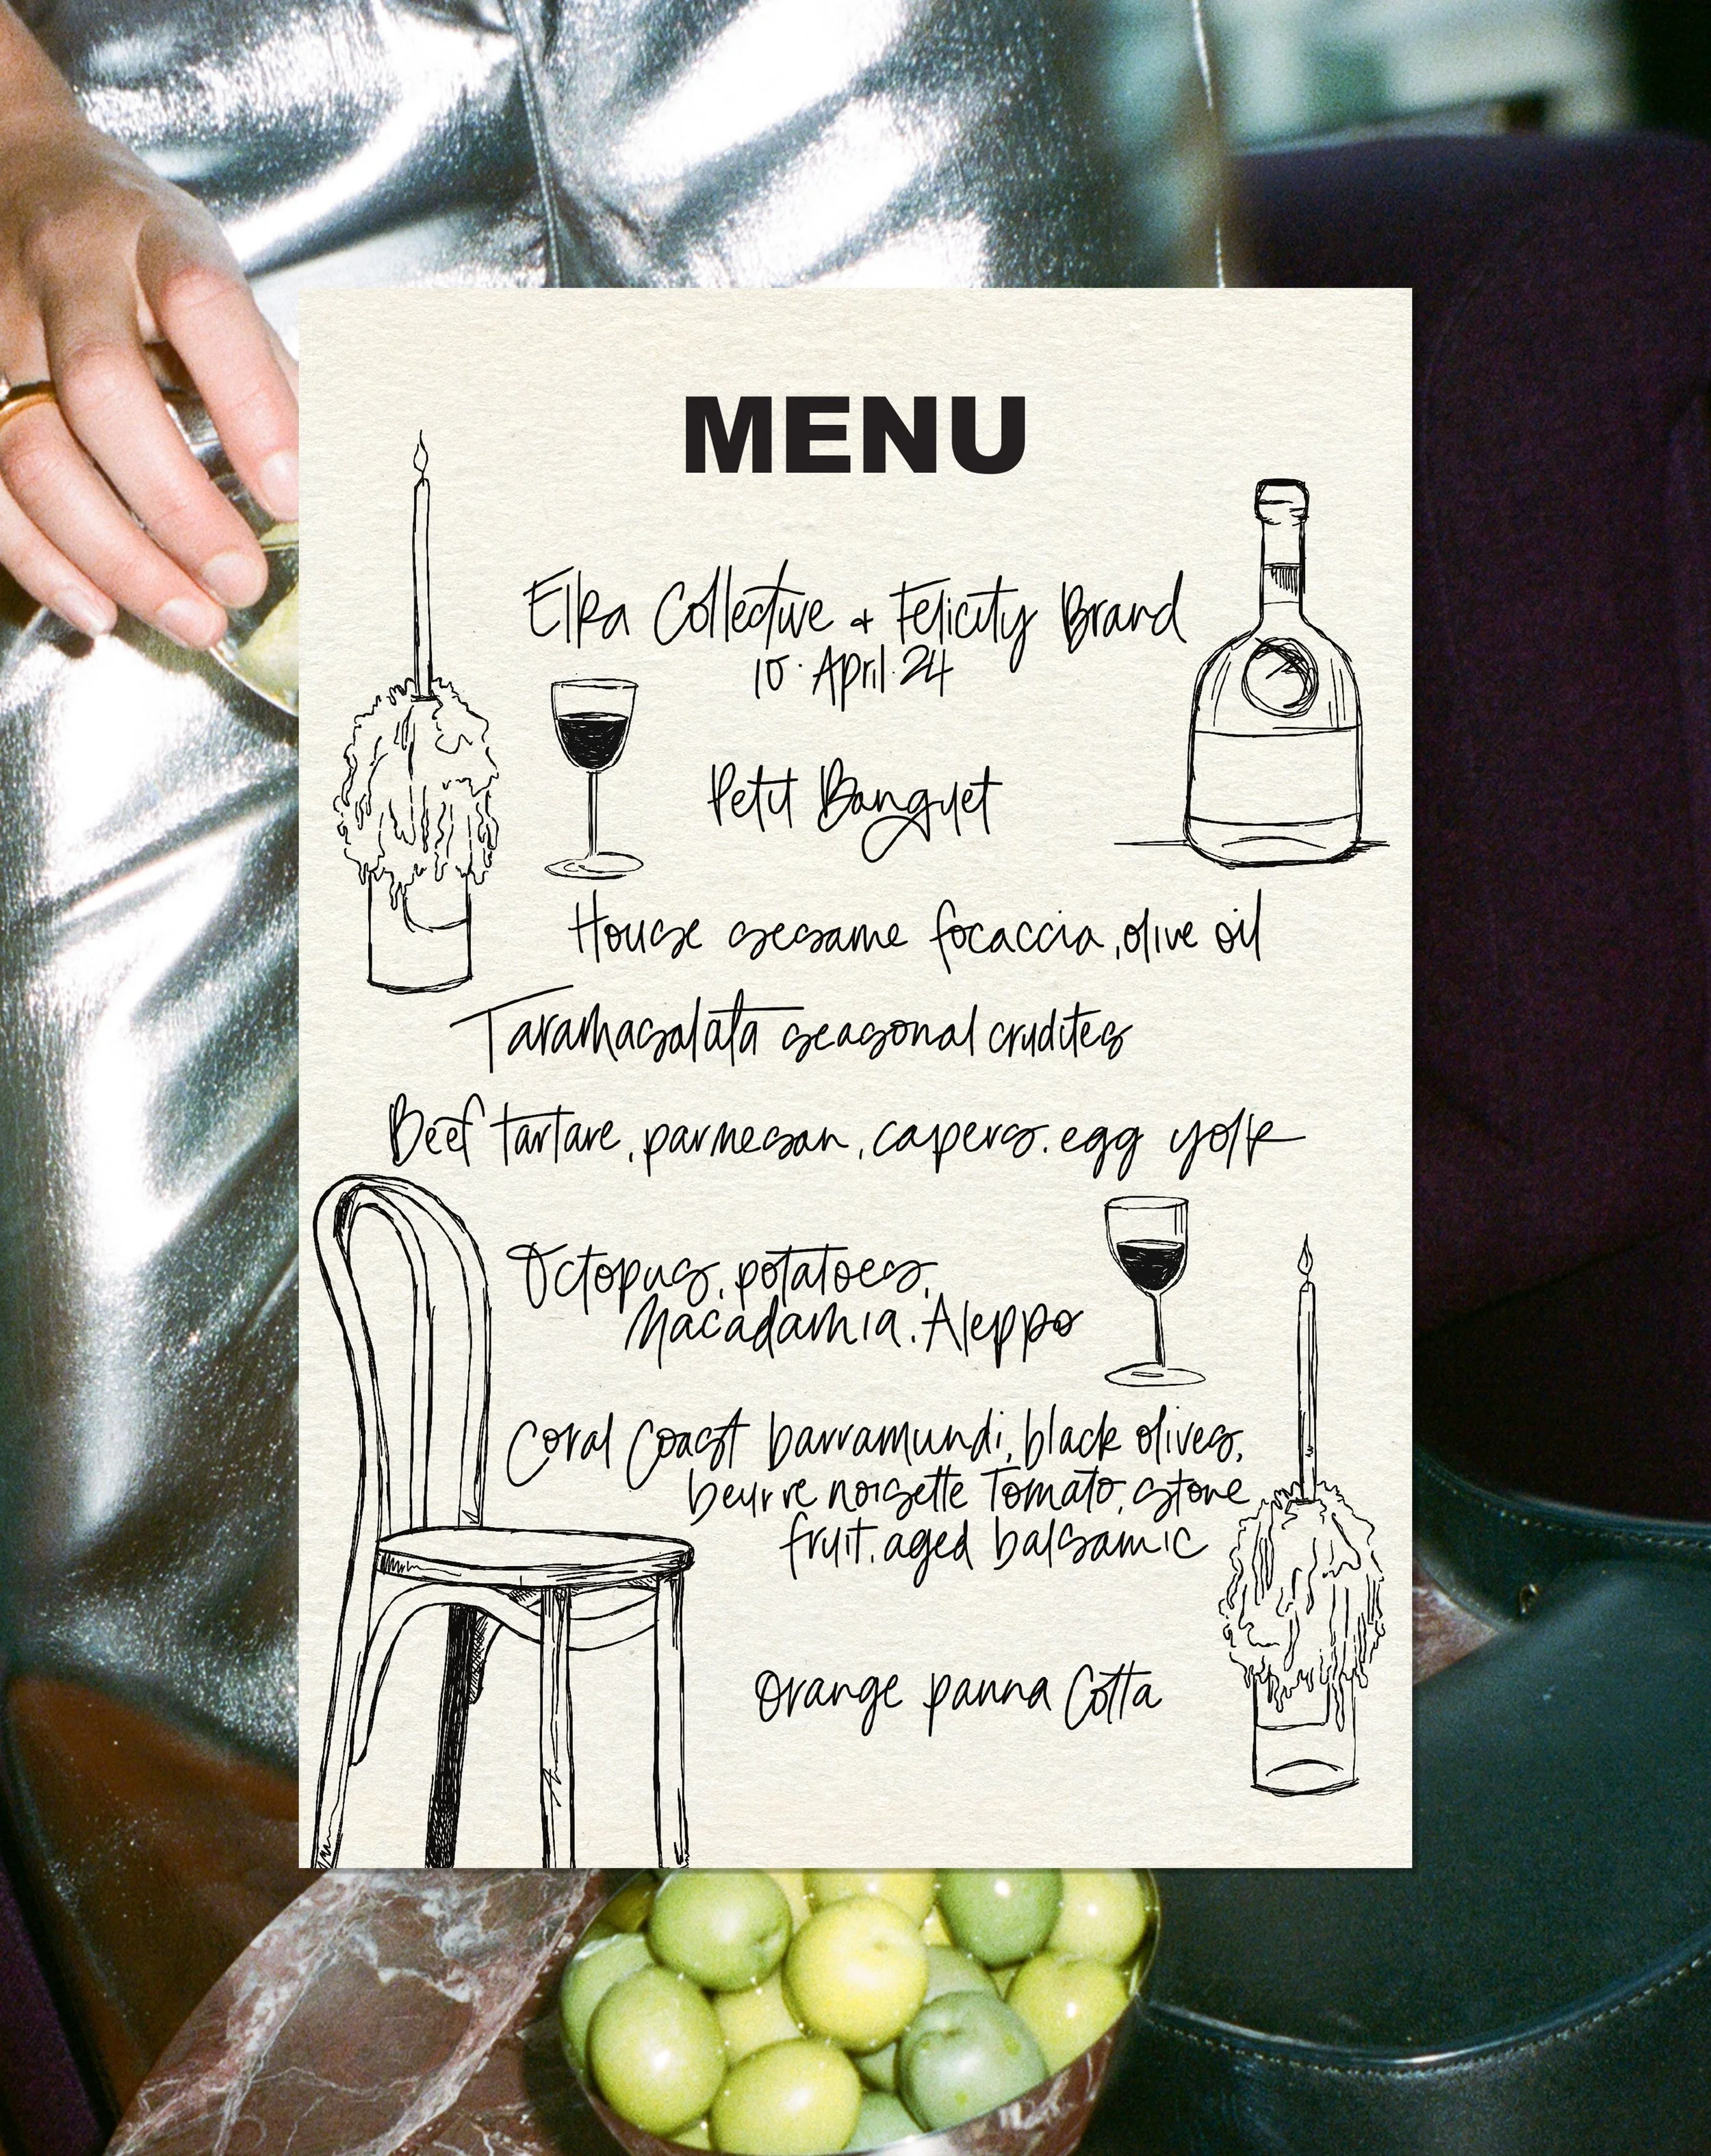 MENU
Elka Collective + Felicity Brand
10 · April · 24
Petit Banquet
House sesame focaccia, olive oil
Taramasalata seasonal crudites
Beef tartare, parmesan, capers, egg yolk
Octopus, potatoes,
Macadamia, Aleppo
Coral Coast barramundi, black olives,
beurre noisette Tomato, stone
fruit, aged balsamic
Orange panna Cotta